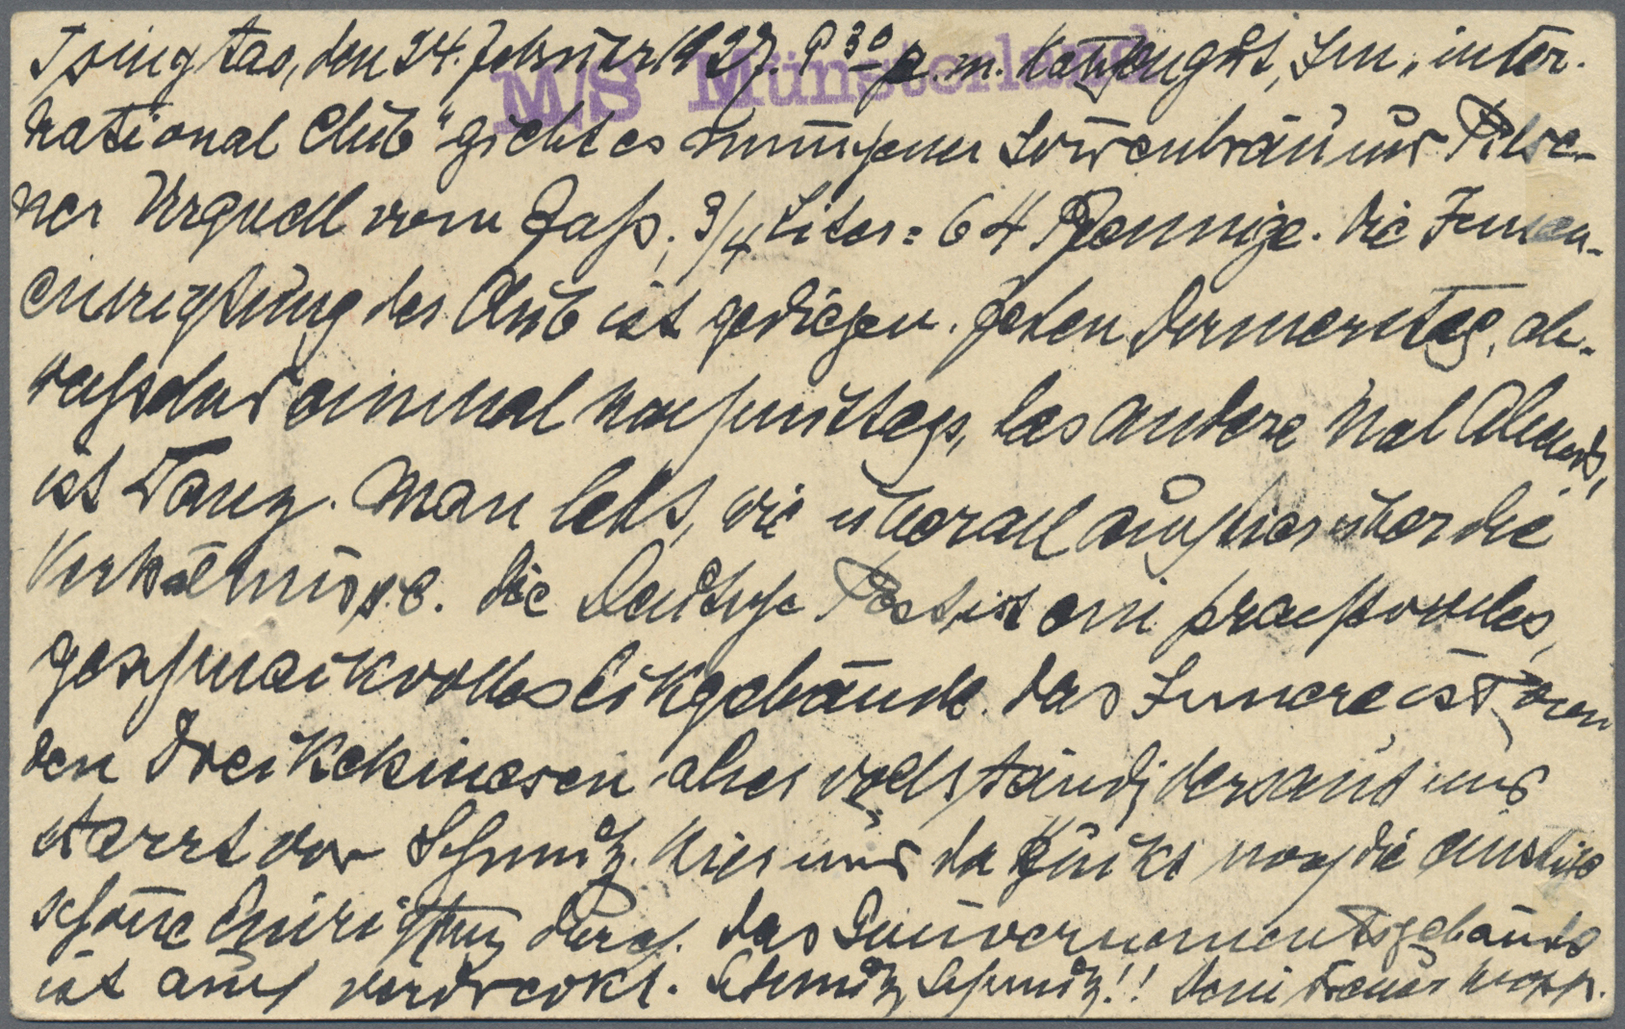 Tsingtao, den 24. Februar 1927. 9³⁰ p. m. Im „inter-
M/S Münsterland
national Club“ giebt es Münchener Löwenbräu und Pilse-
ner Urquell vom Faß, 3/4 Liter = 64 Pfennige. Die Innen-
einrichtung des Club ist gediegen. Jeden Donnerstag, ab-
wechselnd einmal nachmittags, das andere Mal Abends,
ist Tanz. Man lebt, wie überall auch hier über die
Verhältnisse. Die Deutsche Post ist ein prachtvolles,
geschmackvolles Eckgebäude. Das Innere ist von
den Dreckchinesen aber vollständig versaut und
starrt vor Schmutz. Hier und da guckt noch die einstige
schöne Einrichtung durch. Das Gouvernementsgebäude
ist auch verdreckt. Schmutz, Schmutz!! Dein treuer